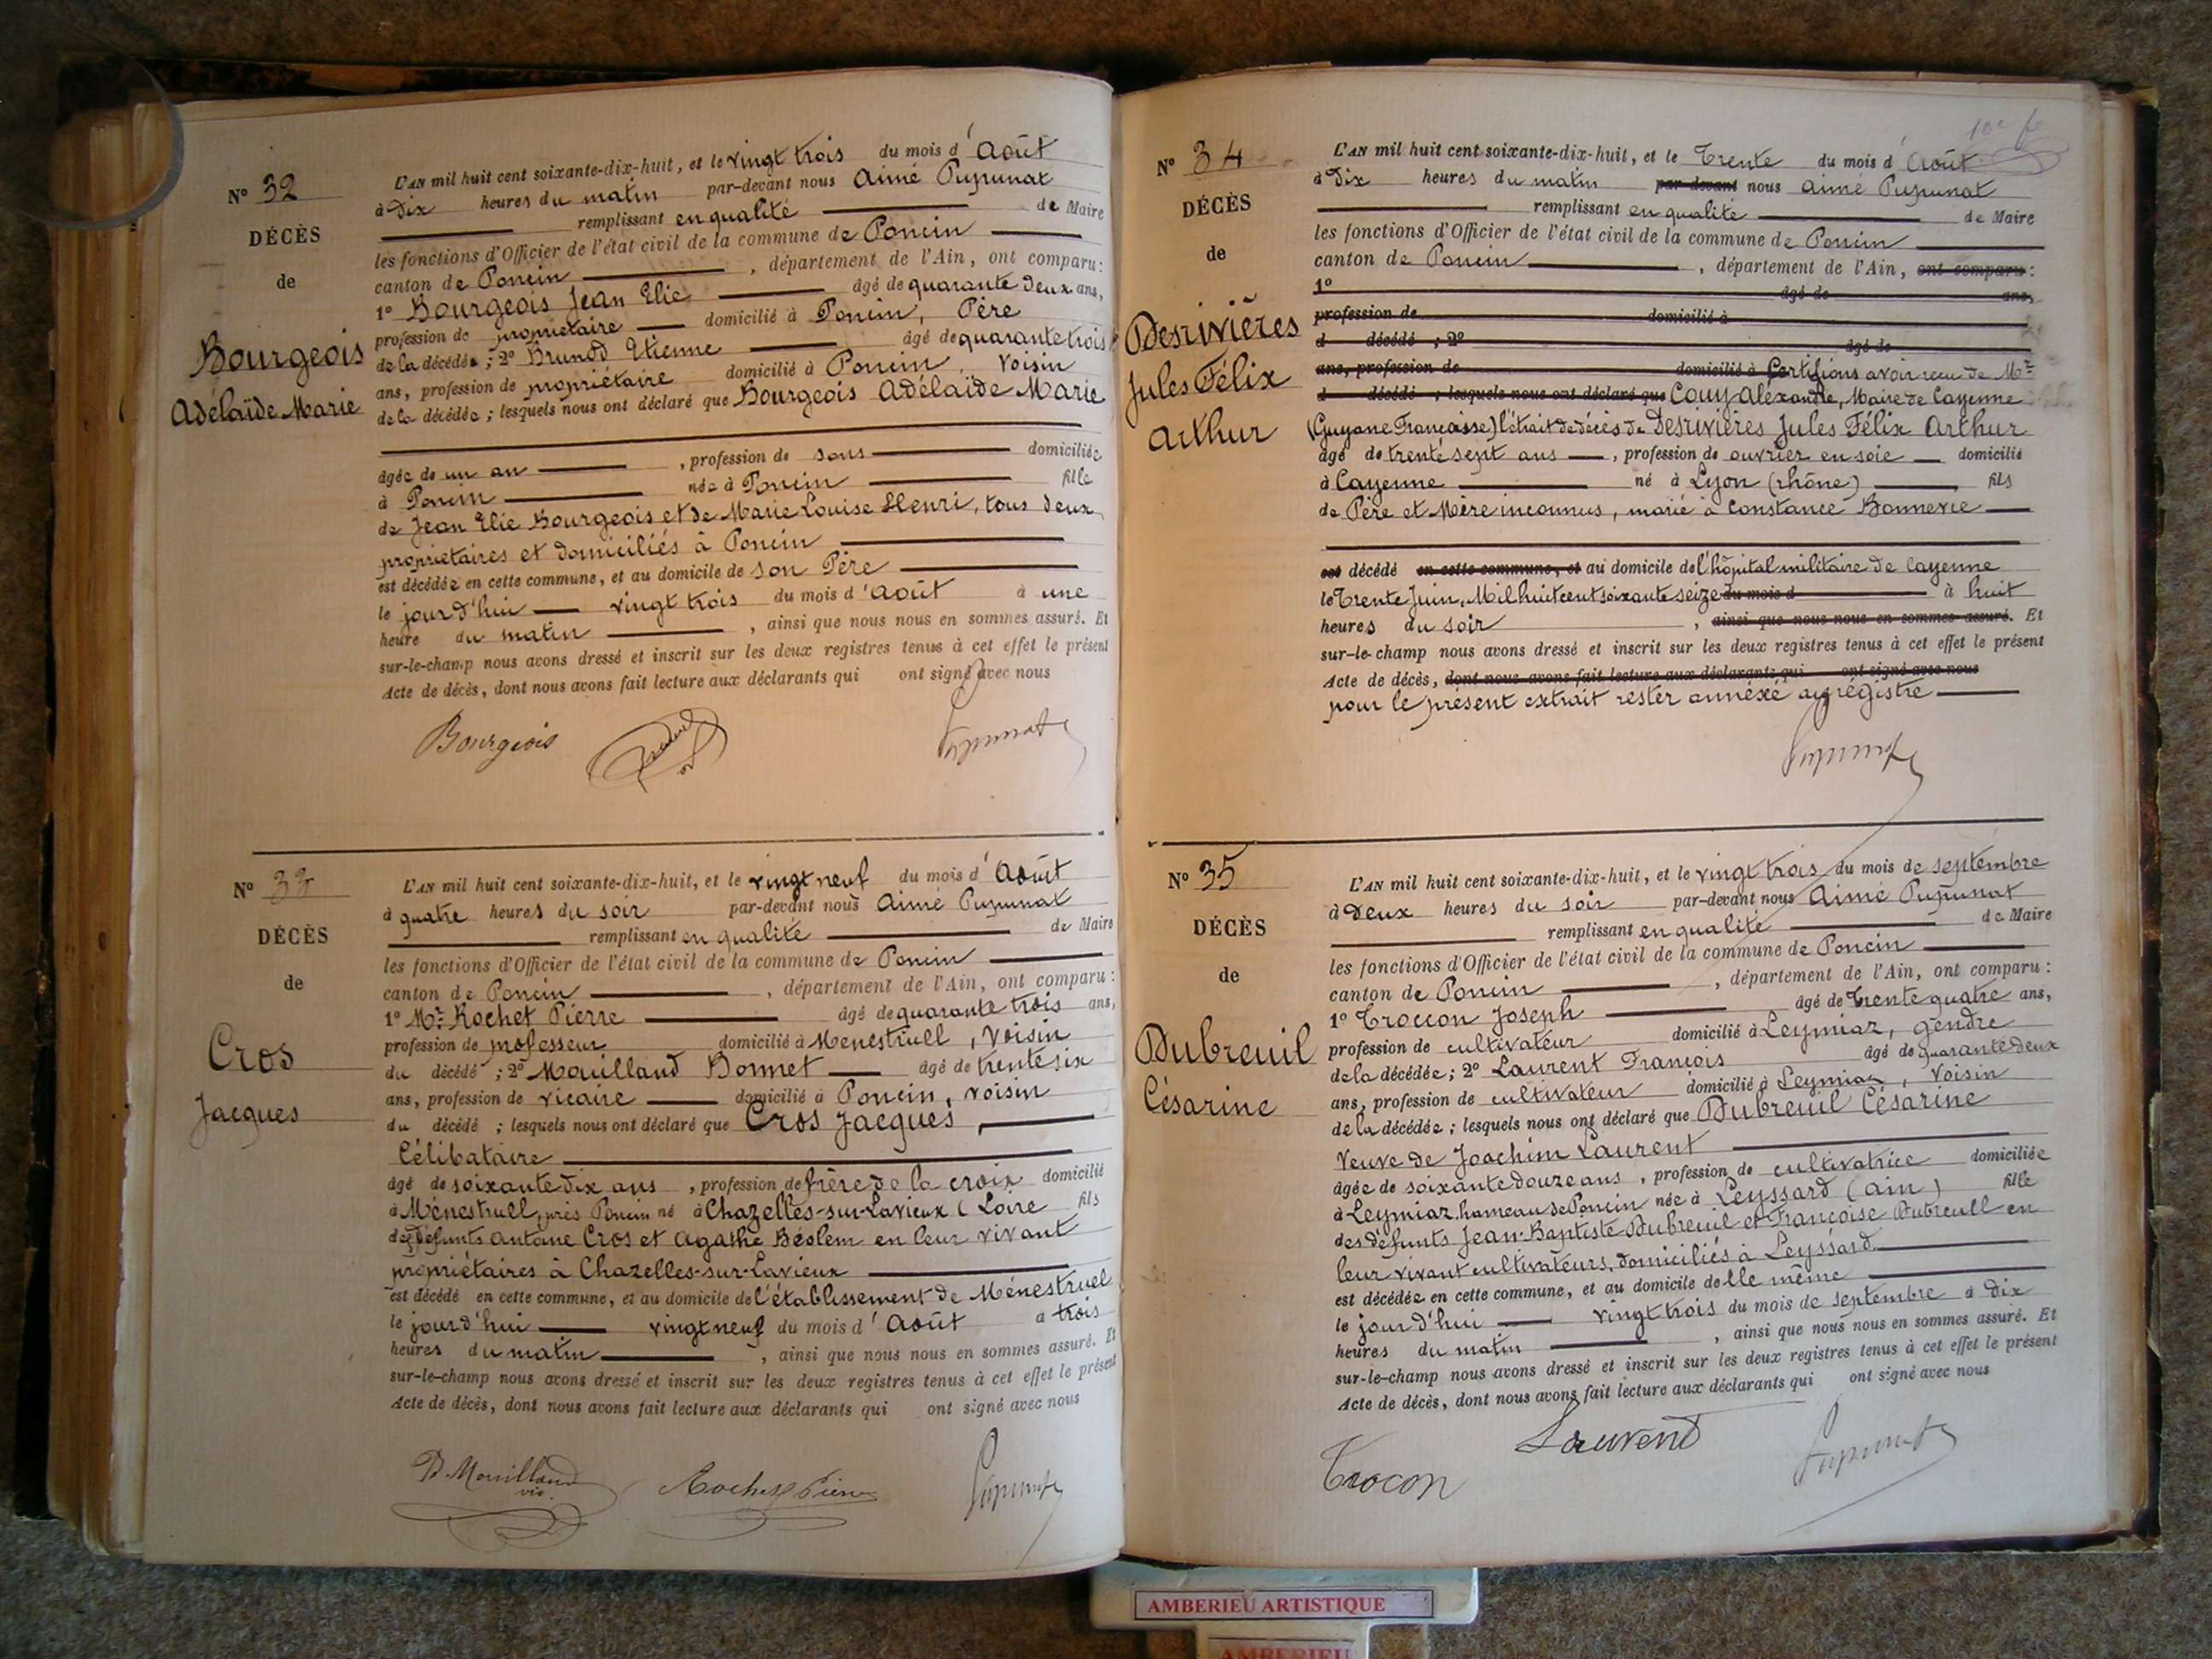 N° 32
DÉCÈS
de
Bourgeois
Adélaïde Marie
L'AN mil huit cent soixante-dix-huit, et le vingt trois du mois d'Août
à Dix heures du matin par-devant nous Aimé Pupunat
remplissant en qualité de Maire
les fonctions d'Officier de l'état civil de la commune de Poncin
canton de Poncin, département de l'Ain, ont comparu:
1° Bourgeois Jean Elie âgé de quarante Deux ans,
profession de propriétaire domicilié à Poncin, Père
de la décédée; 2° Brunod Etienne âgé de quarante trois
ans, profession de propriétaire domicilié à Poncin, voisin
de la décédée; lesquels nous ont déclaré que Bourgeois Adélaïde Marie
âgée de un an, profession de sans domiciliée
à Poncin née à Poncin fille
de Jean Elie Bourgeois et de Marie Louise Henri, tous deux
propriétaires et domiciliés à Poncin
est décédée en cette commune, et au domicile de son Père
le jourd'hui vingt trois du mois d'Août à une
heure du matin, ainsi que nous nous en sommes assuré. Et
sur-le-champ nous avons dressé et inscrit sur les deux registres tenus à cet effet le présent
Acte de décès, dont nous avons fait lecture aux déclarants qui ont signé avec nous
Bourgeois Pupunat
N° 33
DÉCÈS
de
Cros
Jacques
L'AN mil huit cent soixante-dix-huit, et le vingt neuf du mois d'Août
à quatre heures du soir par-devant nous Aimé Pupunat
remplissant en qualité de Maire
les fonctions d'Officier de l'état civil de la commune de Poncin
canton de Poncin, département de l'Ain, ont comparu:
1° Mr. Rochet Pierre âgé de quarante trois ans,
profession de professeur domicilié à Menestruell, Voisin
du décédé; 2° Mouilland Bonnet âgé de trente six
ans, profession de vicaire domicilié à Poncin, voisin
du décédé; lesquels nous ont déclaré que Cros Jacques,
Célibataire
âgé de soixante dix ans, profession de frère de la croix domicilié
à Ménestruell, près Poncin né à Chazelles-sur-Lavieux (Loire fils
des défunts Antoine Cros et Agathe Béolem en leur vivant
propriétaires à Chazelles-sur-Lavieux
est décédé en cette commune, et au domicile de l'établissement de Ménestruel
le jourd'hui vingt neuf du mois d'Août à trois
heures du matin, ainsi que nous nous en sommes assuré. Et
sur-le-champ nous avons dressé et inscrit sur les deux registres tenus à cet effet le présent
Acte de décès, dont nous avons fait lecture aux déclarants qui ont signé avec nous
B. Mouilland vic. Rochet Pierre Pupunat
N° 34
DÉCÈS
de
Desrivières
Jules Félix
Arthur
L'AN mil huit cent soixante-dix-huit, et le Trente du mois d'Août
à Dix heures du matin par-devant nous Aimé Pupunat
remplissant en qualité de Maire
les fonctions d'Officier de l'état civil de la commune de Poncin
canton de Poncin, département de l'Ain, ont comparu:
1° âgé de ans,
profession de domicilié à
d décédé; 2° âgé de
ans, profession de domicilié à Certifions avoir reçu de Mr.
d décédé; lesquels nous ont déclaré que Couy Aléxandre, Maire de Cayenne
(Guyane Françaisse) l'étrait de décès de Desrivières Jules Félix Arthur
âgé de trente sept ans, profession de ouvrier en soie domicilié
à Cayenne né à Lyon (rhône) fils
de Père et Mère inconnus, marié à Constance Bonnevie
est décédé en cette commune, et au domicile de l'hôpital militaire de Cayenne
le Trente Juin, Mil huit cent soixante seize du mois d à huit
heures du soir, ainsi que nous nous en sommes assuré. Et
sur-le-champ nous avons dressé et inscrit sur les deux registres tenus à cet effet le présent
Acte de décès, dont nous avons fait lecture aux déclarants qui ont signé avec nous
pour le présent extrait rester annéxé au régistre
Pupunat
N° 35
DÉCÈS
de
Dubreuil
Césarine
L'AN mil huit cent soixante-dix-huit, et le vingt trois du mois de septembre
à Deux heures du soir par-devant nous Aimé Pupunat
remplissant en qualité de Maire
les fonctions d'Officier de l'état civil de la commune de Poncin
canton de Poncin, département de l'Ain, ont comparu:
1° Troccon Joseph âgé de Trente quatre ans,
profession de cultivateur domicilié à Leymiaz, gendre
de la décédée; 2° Laurent François âgé de quarante deux
ans, profession de cultivateur domicilié à Leymiaz, voisin
de la décédée; lesquels nous ont déclaré que Dubreuil Césarine
Veuve de Joachim Laurent
âgée de soixante douze ans, profession de cultivatrice domiciliée
à Leymiaz, hameau de Poncin née à Leyssard (ain) fille
des défunts Jean-Baptiste Dubreuil et Françoise Dubreuil en
leur vivant cultivateurs, domiciliés à Leyssard
est décédée en cette commune, et au domicile delle même
le jourd'hui vingt trois du mois de septembre à Dix
heures du matin, ainsi que nous nous en sommes assuré. Et
sur-le-champ nous avons dressé et inscrit sur les deux registres tenus à cet effet le présent
Acte de décès, dont nous avons fait lecture aux déclarants qui ont signé avec nous
Trocon Laurent Pupunat
AMBERIEU ARTISTIQUE
AMBERIEU